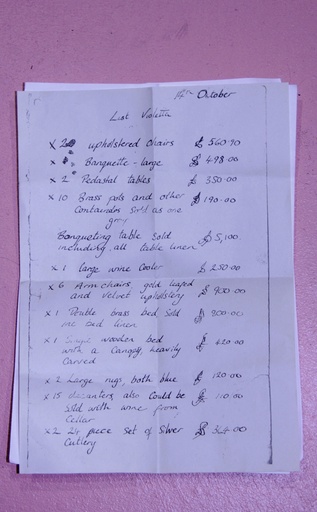 14th October
List Violetta
x 2 upholstered chairs £ 560.70
x Banquette - large £ 498.00
x 2 Pedastal tables £ 350.00
x 10 Brass pots and other £ 190.00
Containors sold as one
Banqueting table Sold £ 5,100
including all table linen
x 1 large wine Cooler £ 250.00
x 6 Arm chairs, gold leafed £ 900.00
and velvet upholstery
x 1 Double brass bed Sold £ 800.00
inc bed linen
x 1 Single wooden bed £ 420.00
with a Canopy, heavily
Carved
x 2 Large rugs, both blue £ 120.00
x 15 decanters also Could be £ 110.00
Sold with wine from
Cellar
x 2 piece Set of Silver £ 364.00
Cutlery